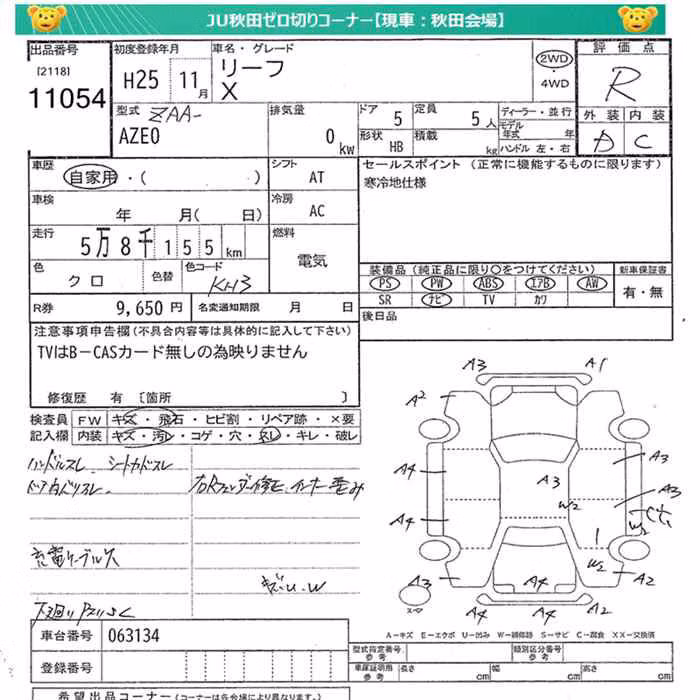 JU秋田ゼロ切りコーナー【現車：秋田会場】
出品番号 [2118] 11054
初度登録年月 H25 11月
車名・グレード リーフ X
2WD ・ 4WD
評価点 R
型式 ZAA- AZE0
排気量 0 kw
ドア 5
定員 5人
形状 HB
積載 kg
ディーラー・並行
モデル年式 年
ハンドル 左・右
外装 D
内装 C
車歴 自家用・( )
シフト AT
セールスポイント (正常に機能するものに限ります)
寒冷地仕様
車検 年 月( 日)
冷房 AC
走行 5万8千155km
燃料 電気
色 クロ
色替
色コード KH3
装備品 (純正品に限り○をつけてください)
PS PW ABS エアB AW
SR ナビ TV カワ
新車保証書 有・無
R券 9,650円
名変通知期限 月 日
後日品
注意事項申告欄 (不具合内容等は具体的に記入して下さい)
TVはB-CASカード無しの為映りません
修復歴 有 [箇所 ]
検査員記入欄
FW キズ・飛石・ヒビ割・リペア跡・×要
内装 キズ・汚レ・コゲ・穴・スレ・キレ・破レ
ハンドルスレ シートカドスレ
ドア内ハリスレ
右Rフェンダー修正 インナー歪み
充電ケーブル欠
キズU.W
下廻りPハリS.C
A3 A1
A2
A4 A3 A3
A3
W2
A4 W2
W2
A3 A4 A4 A2 A2
スペア
A-キズ E-エクボ U-凹み W-補修跡 S-サビ C-腐食 XX-交換済
車台番号 063134
登録番号
型式指定番号 参考
類別区分番号 参考
車庫証明用 参考 長さ cm 幅 cm 高さ cm
希望出品コーナー (コーナーは各会場により異なります。)